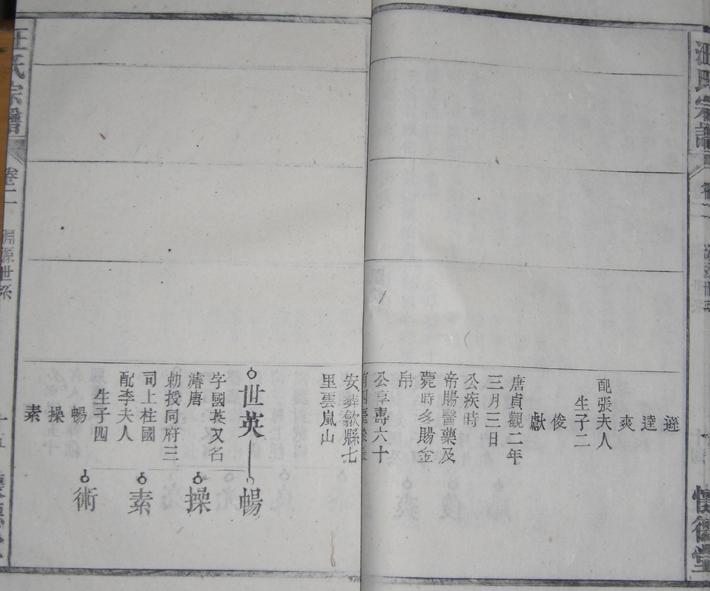 汪氏宗譜
遜
達
爽
配張夫人
生子二
俊
獻
唐貞觀二年
三月三日
公疾時
帝賜醫藥及
薨時多賜金
帛
公享壽六十
安葬歙縣七
里雲嵐山
世英
字國英又名
濬唐
勅授同府三
司上柱國
配李夫人
生子四
暢
操
素
暢
操
素
術
汪氏宗譜
卷二
淵源世系